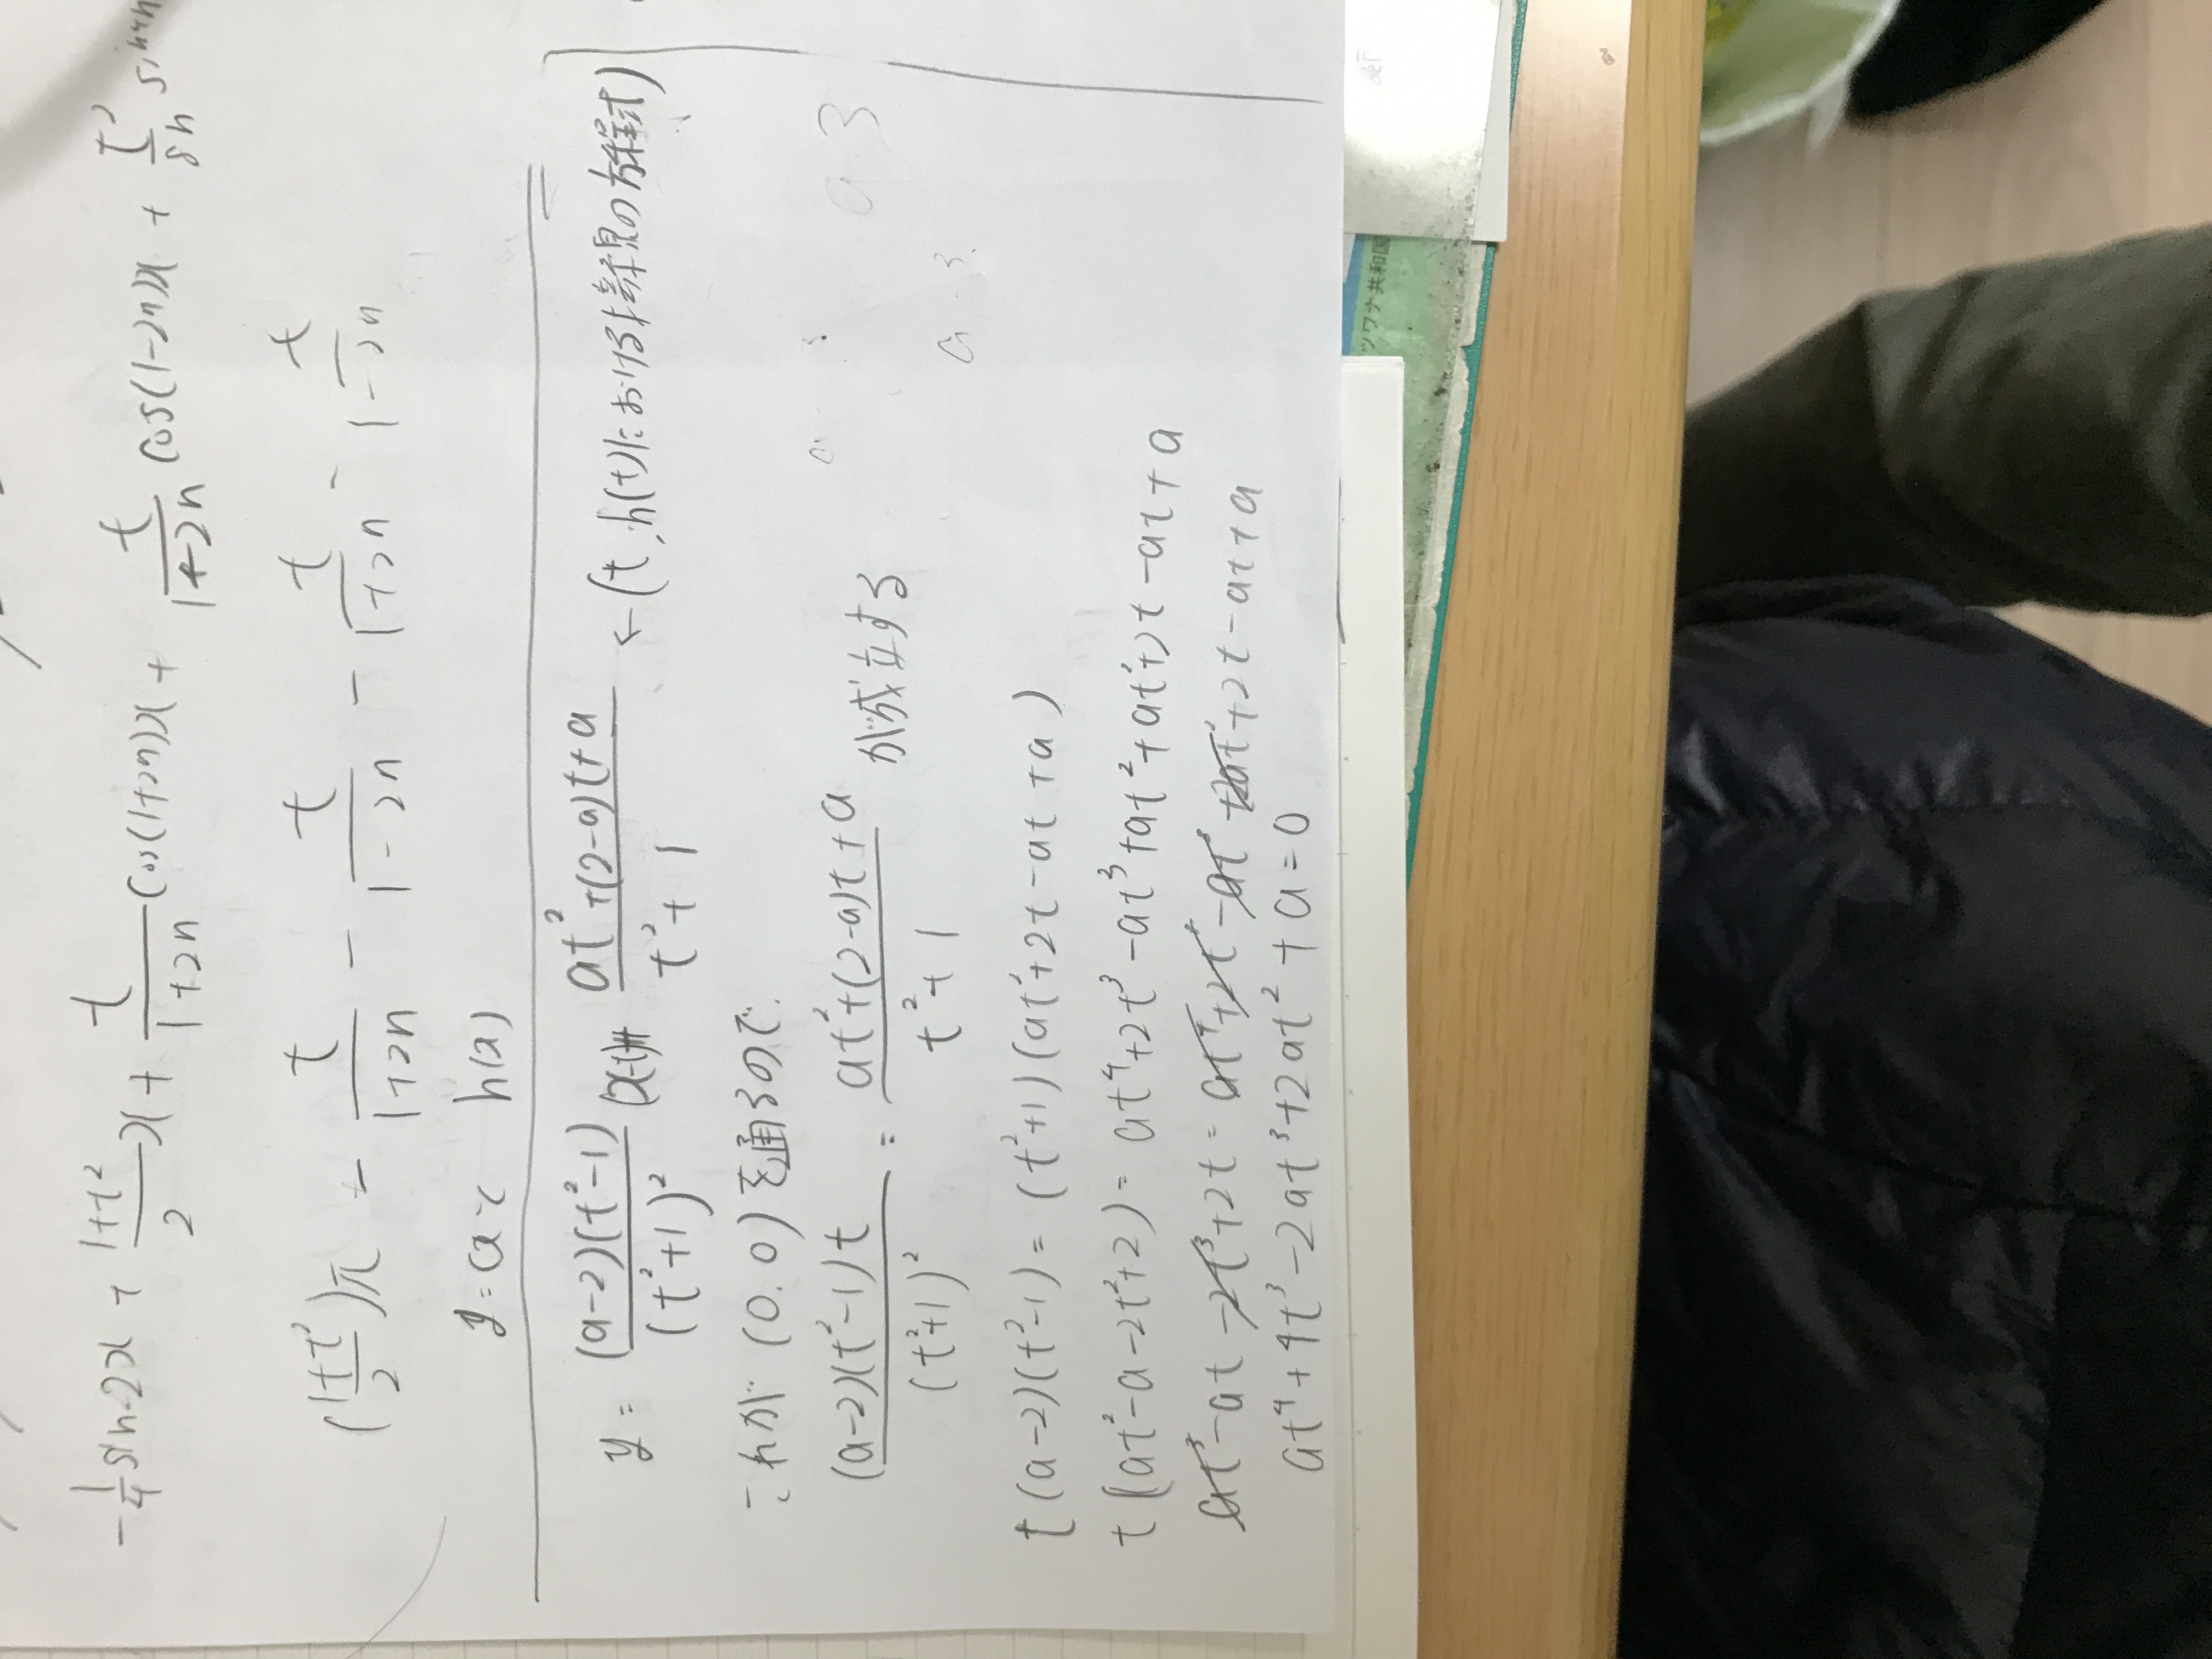 -1/4 sin2x + (1+t²/2)x + t/(1+2n) cos(1+2n)x + t/(1+2n) cos(1-2n)x + t²/8n sin4n
(1+t²/2)π + - t/(1+2n) - t/(1-2n) - t/(1+2n) - t/(1-2n)
y=a< h(a)
y = (a-2)(t²-1)/(t²+1)² (x-t)+ (at²+(2-a)t+a)/(t²+1) ←(t,h(t)における接線の方程式)
これが (0.0) を通るので
(a-2)(t²-1)t/(t²+1)² = (at²+(2-a)t+a)/(t²+1) が成立する
t(a-2)(t²-1) = (t²+1)(at²+2t-at+a)
t(at²-a-2t²+2) = at⁴+2t³-at³+at²+at²+2t-at+a
at³-at-2t³+2t = at⁴+2t³-at³+2at²+2t-at+a
at⁴+4t³-2at³+2at²+a=0
ツワナ共和国